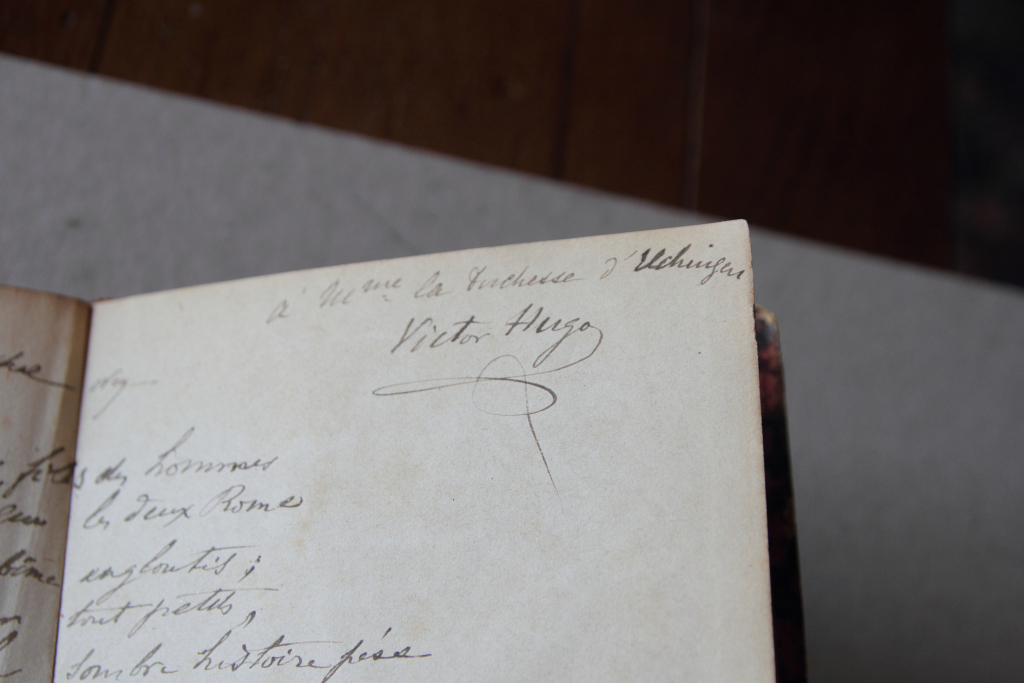 à Mme la Duchesse d'Elchingen
Victor Hugo
des hommes
les deux Rome
engloutis ;
tout petits,
sombre histoire pèse